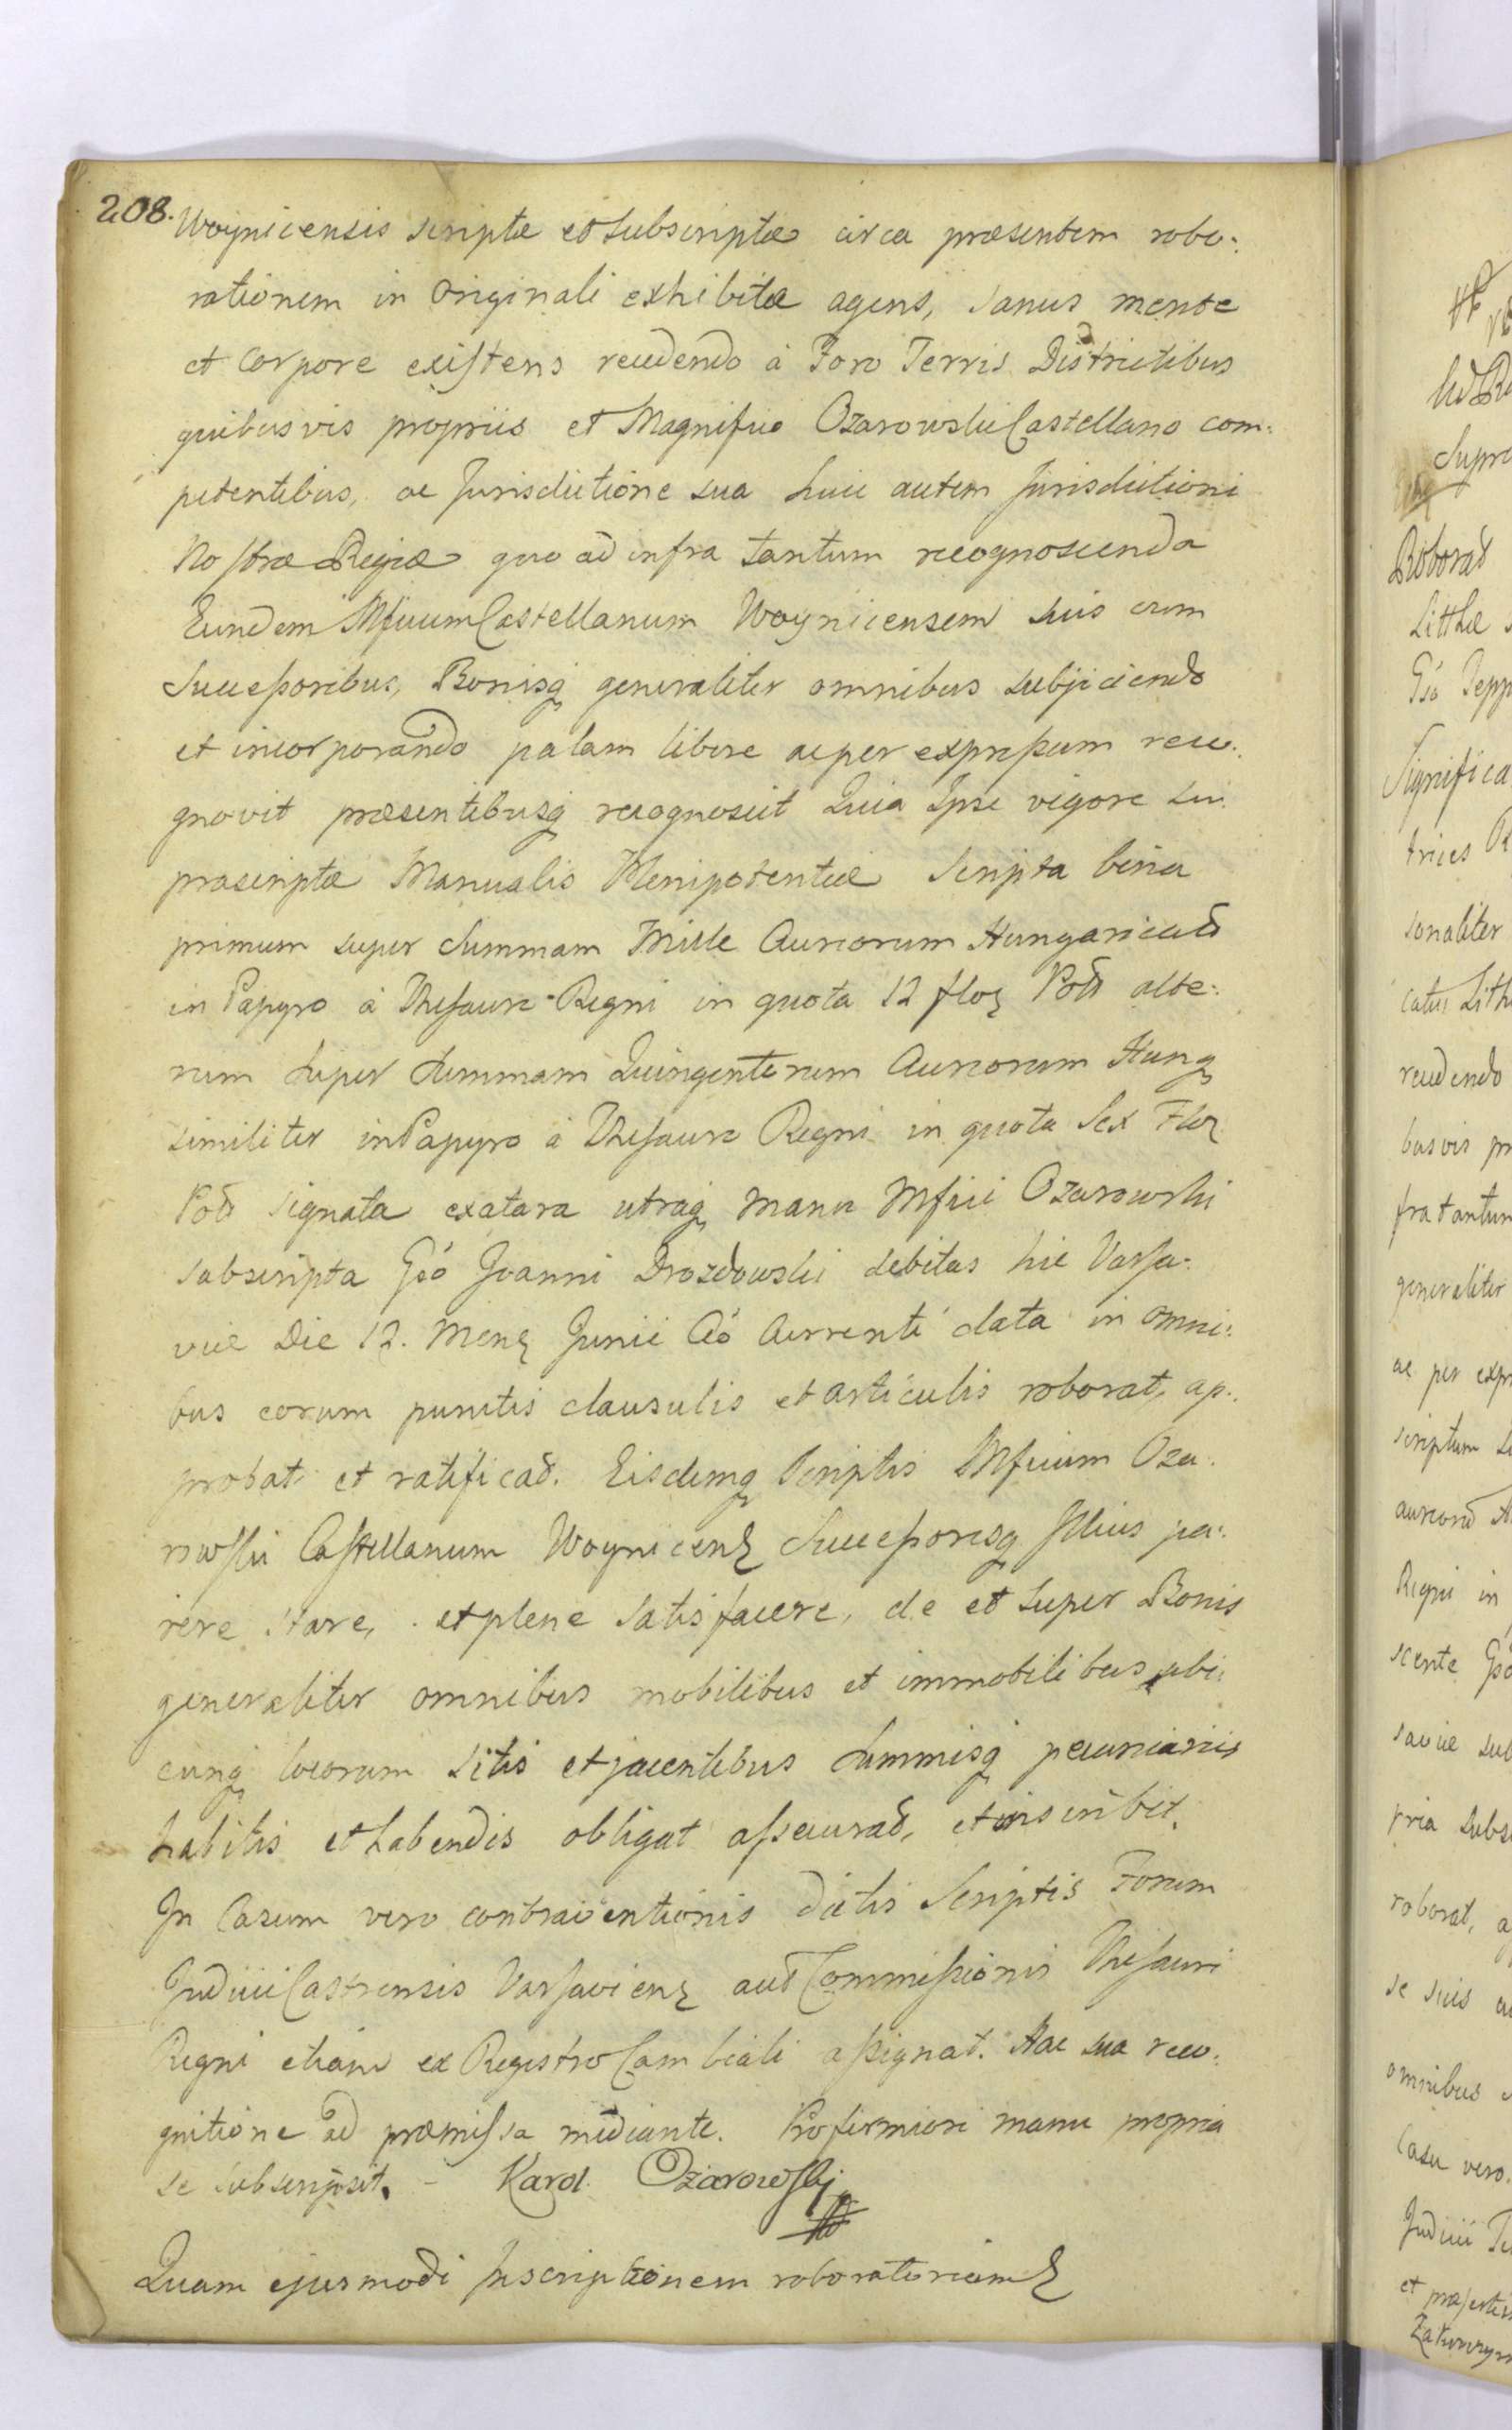 208.
Woynicensis scriptæ et subscriptæ circa præsentem robo:
rationem in Originali exhibitæ agens, sanus mente
et Corpore existens recedendo à Foro Terris Districtibus
quibusvis propriis et Magnifico Ozarowski Castellano com:
petentibus, ac Jurisdictione sua huic autem Jurisdictioni
Nostræ Regiæ quo ad infra tantum recognoscenda
Eundem Mficum Castellanum Woynicensem suis cum
Successoribus, Bonisq generaliter omnibus subjiciendo
et incorporando palam libere ac per expressum reco:
gnovit præsentibusq recognoscit Quia Ipse vigore su:
prascriptæ Manualis Plenipotentiæ Scripta bina
primum super Summam Mille Aureorum Hungaricad
in Papyro à Thesauro Regni in quota 12 flor Pol alte:
rum super Summam Quingentorum Aureorum Hung
similiter in Papyro à Thesauro Regni in quota Sex Flor
Pol signata exatara utraq manu Mfici Ozarowski
subscripta Gso Joanni Drozdowski debitas hic Varsa:
viæ Die 12. Mens Junii Ao Currenti data in omni:
bus eorum punctis clausulis et articulis roborat, ap:
probat et ratificat. Eisdemq Scriptis Mficum Oza:
rowski Castellanum Woynicens Successoresq Illius pa:
rere stare, et plene satisfacere, de et super Bonis
generaliter omnibus mobilibus et immobilibus ubi:
cunq locorum sitis et jacentibus Summisq pecuniariis
habitis et habendis obligat assecurat, et inscribit.
In Casum vero contraventionis dictis Scriptis Forum
Judicii Castrensis Varsaviens aut Commissionis Thesauri
Regni etiam ex Registro Cambiali assignat. Hac sua reco:
gnitione ad præmissa mediante. Pro firmiori manu propria
se subscripsit. - Karol Ożarowski
Quam ejusmodi Inscriptionem roboratoriam